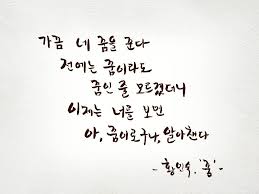 가끔 네 꿈을 꾼다
전에는 꿈이라도
꿈인 줄 모르겠더니
이제는 너를 보면
아, 꿈이로구나, 알아챈다
- 황인숙, '꿈' -